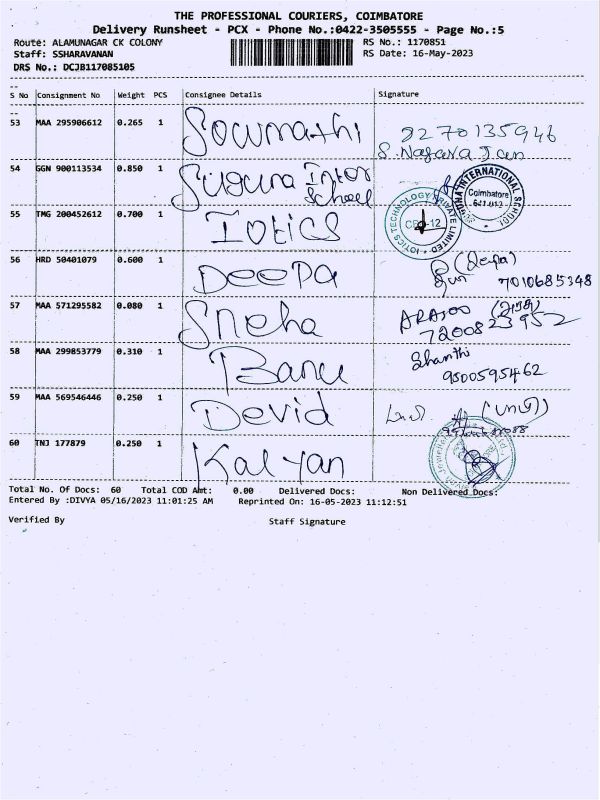 THE PROFESSIONAL COURIERS, COIMBATORE
Delivery Runsheet - PCX - Phone No.:0422-3505555 - Page No.:5
Route: ALAMUNAGAR CK COLONY RS No.: 1170851
Staff: SSHARAVANAN RS Date: 16-May-2023
DRS No.: DCJB117085105
--
S No Consignment No Weight PCS Consignee Details Signature
--
53 MAA 295906612 0.265 1 Sowmathi 8270135946
S. Nagarajan
54 GGN 900113534 0.850 1 Suguna Inter School
SUGUNA INTERNATIONAL SCHOOL Coimbatore
55 TMG 200452612 0.700 1 Iotics
IOTICS TECHNOLOGY PRIVATE LIMITED
56 HRD 50401079 0.600 1 DeePa 7010685348
57 MAA 571295582 0.080 1 Sneha
7200823952
58 MAA 299853779 0.310 1 Banu Shanthi
9500595462
59 MAA 569546446 0.250 1 Devid
60 TNJ 177879 0.250 1 Kalyan
Total No. Of Docs: 60 Total COD Amt: 0.00 Delivered Docs: Non Delivered Docs:
Entered By :DIVYA 05/16/2023 11:01:25 AM Reprinted On: 16-05-2023 11:12:51
Verified By Staff Signature